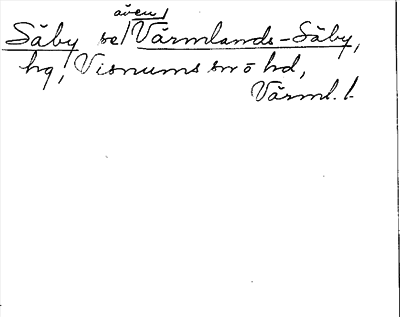 Säby se även Värmlands-Säby,
hg, Visnums sn o hd,
Värml. l.